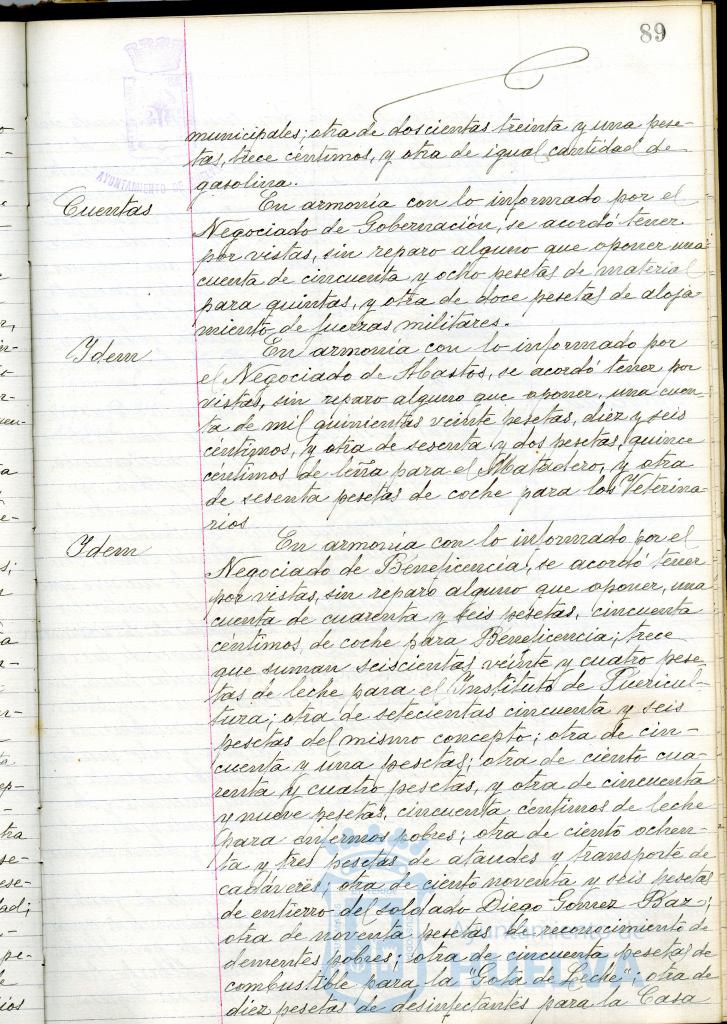 89
municipales; otra de doscientas treinta y una pese-
tas, trece céntimos, y otra de igual cantidad de
gasolina.
Cuentas En armonía con lo informado por el
Negociado de Gobernación, se acordó tener
por vistas, sin reparo alguno que oponer una
cuenta de cincuenta y ocho pesetas de material
para quintas, y otra de doce pesetas de aloja-
miento de fuerzas militares.
Idem En armonía con lo informado por
el Negociado de Abastos, se acordó tener por
vistas, sin reparo alguno que oponer, una cuen-
ta de mil quinientas veinte pesetas, diez y seis
céntimos, y otra de sesenta y dos pesetas, quince
céntimos de leña para el Matadero, y otra
de sesenta pesetas de coche para los Veterina-
rios
Idem En armonia con lo informado por el
Negociado de Beneficencia, se acordó tener
por vistas, sin reparo alguno que oponer, una
cuenta de cuarenta y seis pesetas, cincuenta
céntimos de coche para Beneficencia; trece
que suman seiscientas veinte y cuatro pese-
tas de leche para el Instituto de Puericul-
tura; otra de setecientas cincuenta y seis
pesetas del mismo concepto; otra de cin-
cuenta y una pesetas; otra de ciento cua-
renta y cuatro pesetas, y otra de cincuenta
y nueve pesetas, cincuenta céntimos de leche
para enfermos pobres; otra de ciento ochen-
ta y tres pesetas de ataudes y transporte de
cadáveres; otra de ciento noventa y seis pesetas
de entierro del soldado Diego Gómez Baz-;
otra de noventa pesetas de reconocimiento de
dementes pobres; otra de cincuenta pesetas de
combustible para la "Gota de Leche"; otra de
diez pesetas de desinfectantes para la Casa
AYUNTAMIENTO DE
Ayuntamiento de
HUELVA